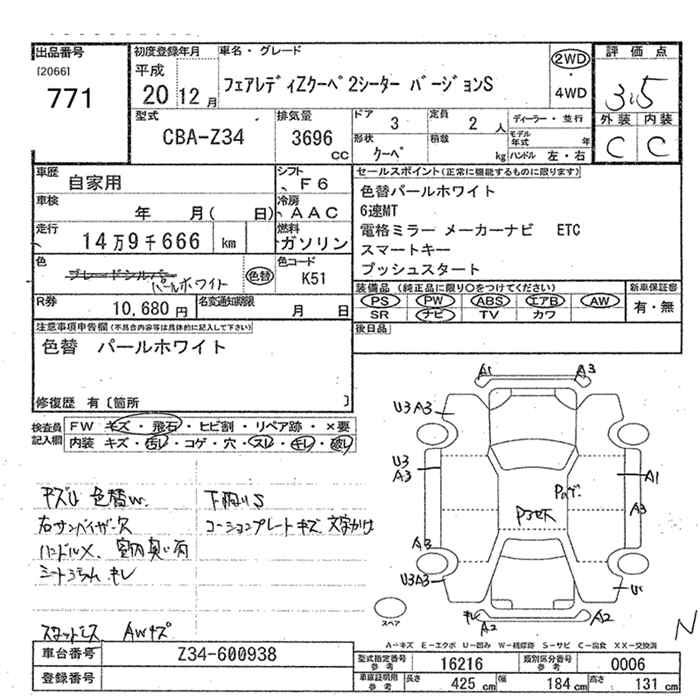 出品番号 初度登録年月 車名・グレード 評価点
[2066] 平成 2WD
771 20 12月 フェアレディZクーペ2シーター バージョンS 4WD 3.5
型式 排気量 ドア 定員 ディーラー・並行 外装 内装
CBA-Z34 3696 CC 3 2人 モデル年式 年 C C
形状 積載
クーペ kg ハンドル 左・右
車歴 シフト セールスポイント(正常に機能するものに限ります)
自家用 F6 色替パールホワイト
車検 冷房 6速MT
年 月( 日) AAC 電格ミラー メーカーナビ ETC
走行 燃料 スマートキー
14万9千666 km ガソリン プッシュスタート
色 色コード
ブレードシルバー
パールホワイト 色替 K51
装備品(純正品に限り○をつけてください) 新車保証書
PS PW ABS エアB AW 有・無
SR ナビ TV カワ
R券 名変通知期限 後日品
10,680円 月 日
注意事項申告欄(不具合内容等は具体的に記入して下さい)
色替 パールホワイト
修復歴 有〔箇所 〕
検査員記入欄 FW キズ・飛石・ヒビ割・リペア跡・×要
内装 キズ・汚レ・コゲ・穴・スレ・キレ・破レ
キズU 色替W 下廻りS
右サンバイザー欠 コーションプレートキズ 文字かけ
ハンドルX、室内臭い 雨
シート キレ
AWキズ
A1 A3
U3 A3
U3
A3 A1
A3
A3
U3A3
キレ
A2 A2
スペア N
A-キズ E-エクボ U-凹み W-補修跡 S-サビ C-腐食 XX-交換済
車台番号 Z34-600938 型式指定番号 参考 16216 類別区分番号 参考 0006
登録番号 車庫証明用 参考 長さ 425cm 幅 184cm 高さ 131cm